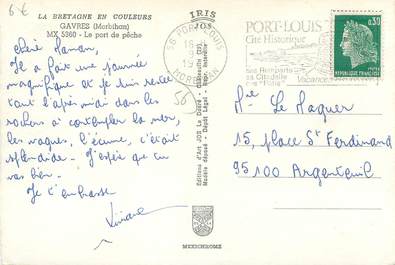 6€
LA BRETAGNE EN COULEURS
GAVRES (Morbihan)
MX 5360 - Le port de pêche
IRIS
56 PORT-LOUIS
16
19
MORBIHAN
PORT-LOUIS
Cité Historique
ses Remparts
sa Citadelle
Vacances
0,30
REPUBLIQUE FRANCAISE
Chère Maman,
Il a fait une journée
magnifique et je suis restée
tout l'après midi dans les
rochers à contempler la mer,
les vagues, l'écume, c'était
splendide. J'espère que tu
vas bien.
Je t'embrasse
Viviane
56
Editions d'Art JOS Le Doaré - Châteaulin
Modèle déposé - Dépôt Légal - Repr. interdite
Me Le Maguer
15, place St Ferdinand
95100 Argenteuil
MEXICHROME